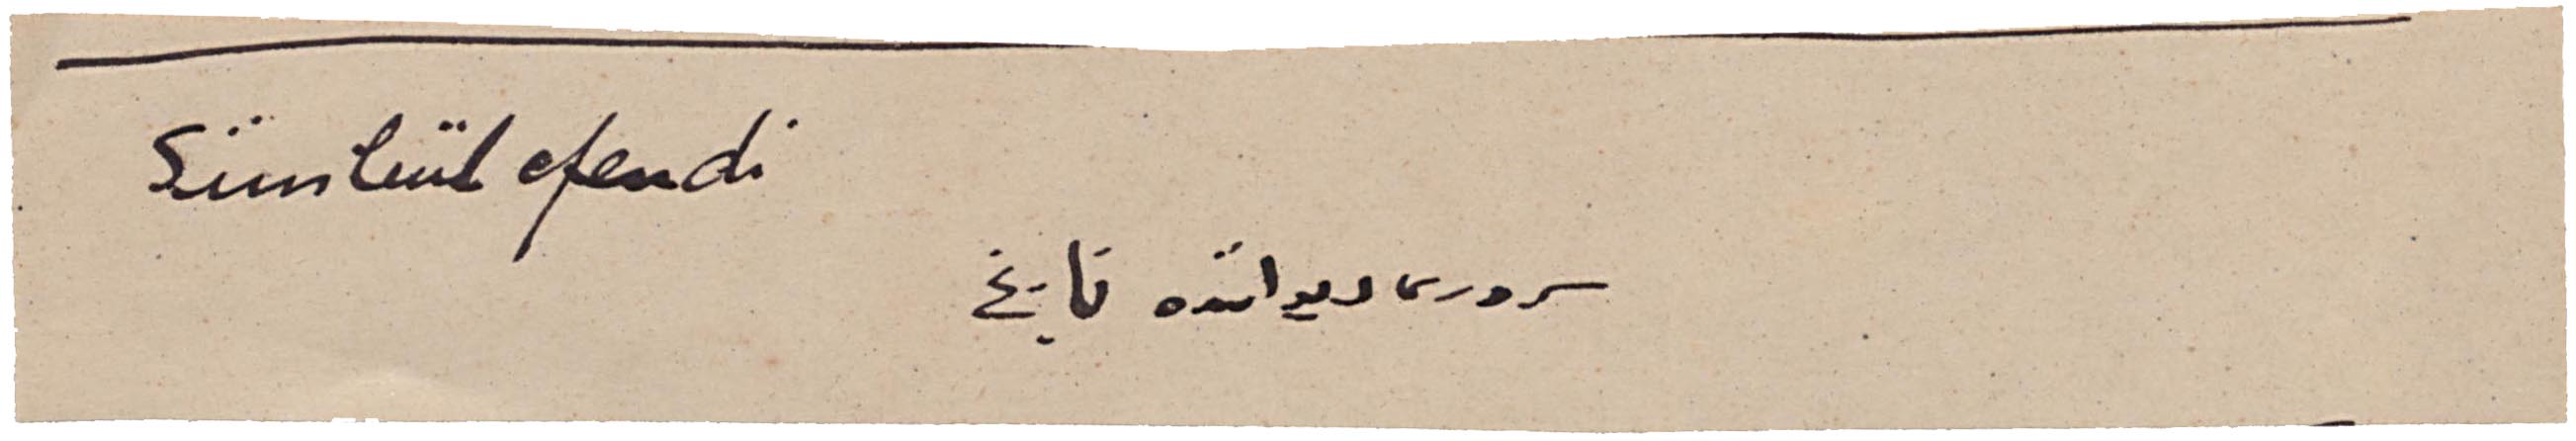 Sümbül efendi
سروری دیواننده تاریخ